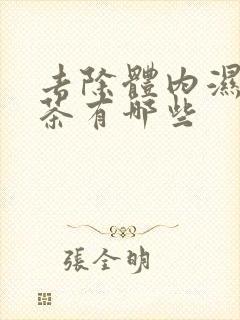 去除體內濕
茶有哪些
張全明